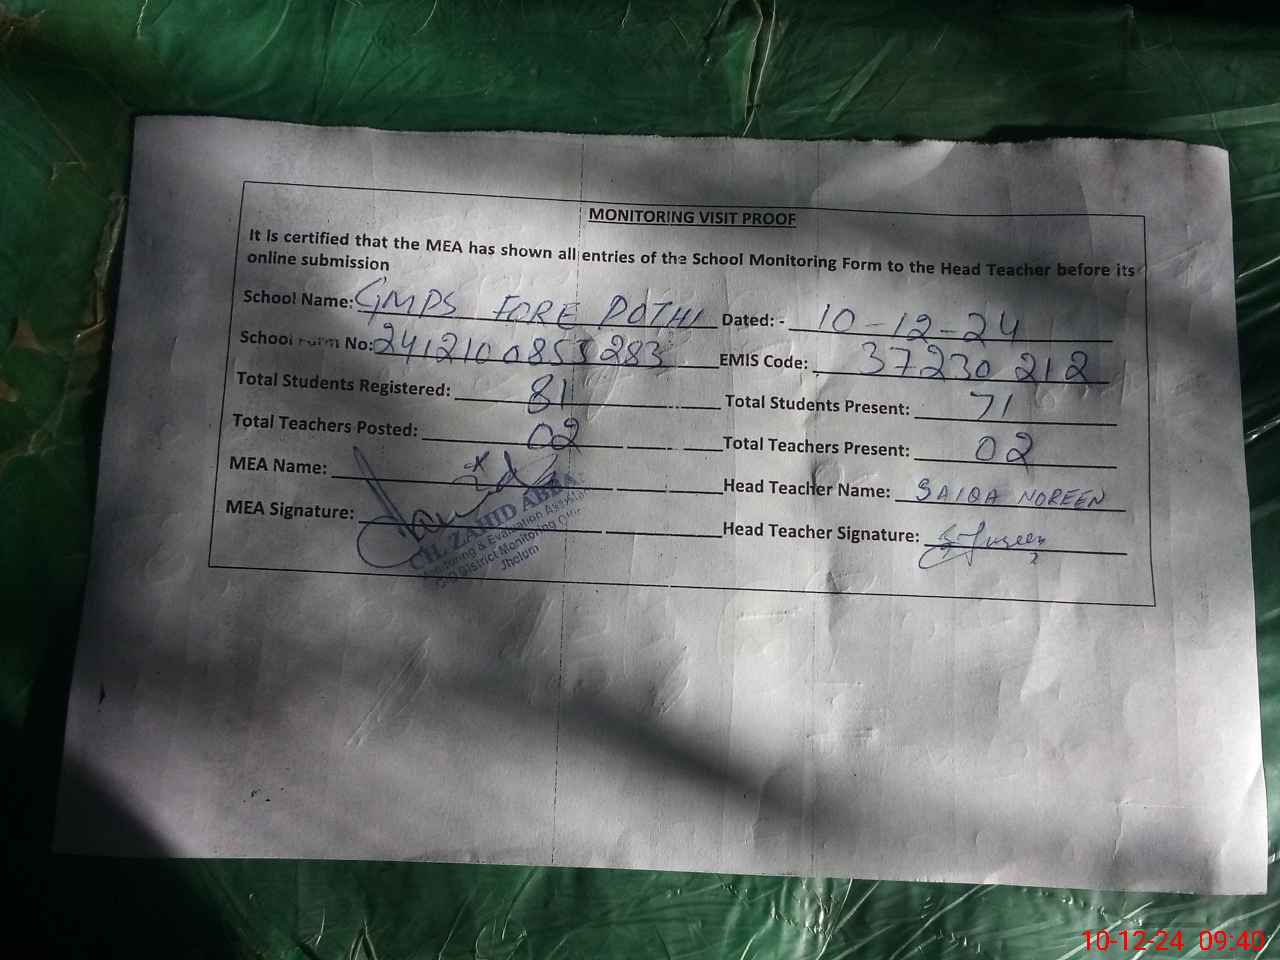 MONITORING VISIT PROOF
It Is certified that the MEA has shown all entries of the School Monitoring Form to the Head Teacher before its
online submission
School Name: GMPS FORE POTHI Dated: - 10-12-24
School Form No: 2412100853283 EMIS Code: 37230212
Total Students Registered: 81 Total Students Present: 71
Total Teachers Posted: 02 Total Teachers Present: 02
MEA Name: Head Teacher Name: SAIQA NOREEN
MEA Signature: Head Teacher Signature:
CH. ZAHID ABBAS
Monitoring & Evaluation Assistant
District Monitoring
Jhelum
10-12-24 09:40